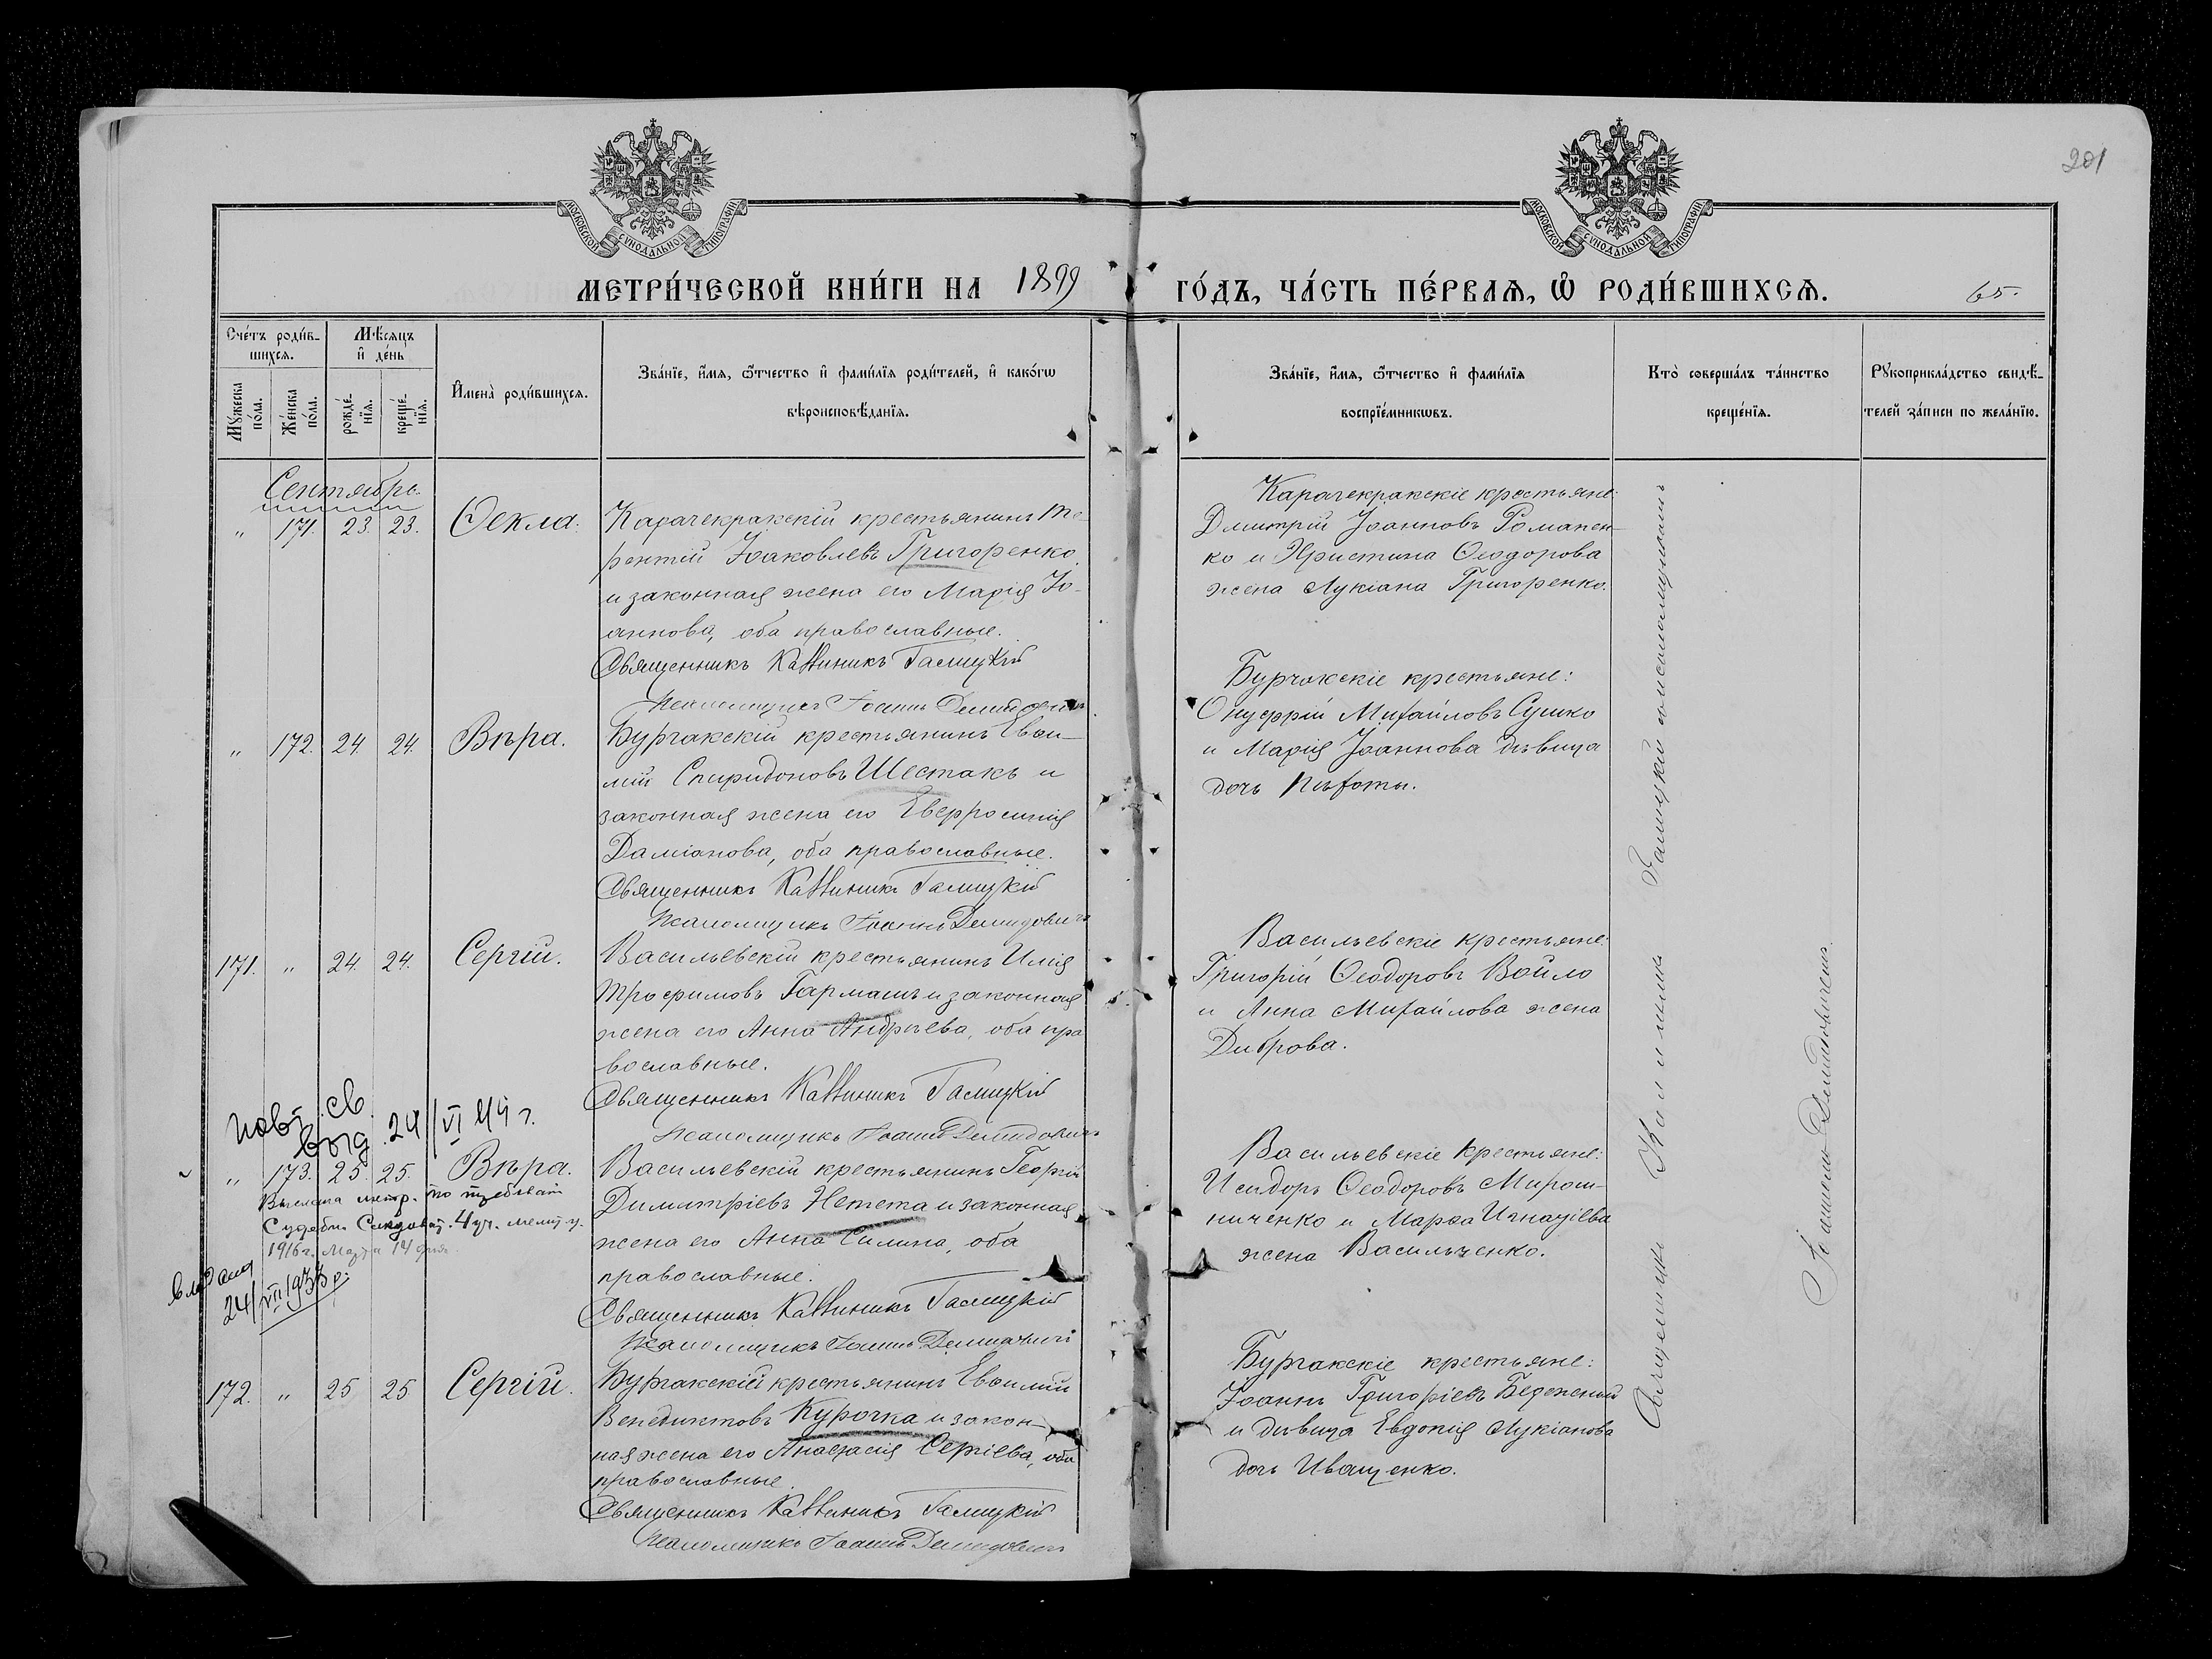 201
МОСКОВСКОЙ СѴНОДАЛЬНОЙ ТИПОГРАФІИ
МОСКОВСКОЙ СѴНОДАЛЬНОЙ ТИПОГРАФІИ
МЕТРИ́ЧЕСКОЙ КНИ́ГИ НА 1899
ГО́ДЪ, ЧА́СТЬ ПЕ́РВАѦ, Ѽ РОДИ́ВШИХСѦ. 65.
Сче́тъ роди́в-
шихсѧ.
Мѣ́сѧцъ
и҆ де́нь
Мꙋ́жеска
по́ла.
Же́нска
по́ла.
рожде́-
нїѧ.
креще́-
нїѧ.
И҆мена̀ роди́вшихсѧ.
Зва́нїе, и҆́мѧ, ѻ҆́тчество и҆ фами́лїѧ роди́телей, и҆ како́гѡ
вѣроисповѣ́данїѧ.
Зва́нїе, и҆́мѧ, ѻ҆́тчество и҆ фами́лїѧ
воспрїе́мникѡвъ.
Кто̀ соверша́лъ та́инство
креще́нїѧ.
Рꙋкоприкла́дство свидѣ́-
телей за́писи по жела́нїю.
Сентябрь.
" 171. 23. 23. Ѳекла.
Карачекракскій крестьянинъ Те-
рентій Іоаковлевъ Григоренко
и законная жена его Марія Іо-
аннова, оба православные.
Священникъ Каллиникъ Галицкій
Псаломщикъ Іоаннъ Демидовичъ
Карачекракскіе крестьяне:
Дмитрій Іоанновъ Романен-
ко и Христина Ѳеодорова
жена Лукіана Григоренко.
" 172. 24. 24. Вѣра.
Бурчакскій крестьянинъ Евѳи-
мій Спиридоновъ Шестакъ и
законная жена его Евфросинія
Даміанова, оба православные.
Священникъ Каллиникъ Галицкій
Псаломщикъ Іоаннъ Демидовичъ
Бурчакскіе крестьяне:
Онуфрій Михайловъ Сушко
и Марія Іоаннова дѣвица
дочь Пѣхоты.
171. " 24. 24. Сергій.
Васильевскій крестьянинъ Илія
Трофимовъ Гармашъ и законная
жена его Анна Андреева, оба пра
вославные.
Священникъ Каллиникъ Галицкій
Псаломщикъ Іоаннъ Демидовичъ
Васильевскіе крестьяне:
Григорій Ѳеодоровъ Войло
и Анна Михайлова жена
Диброва.
св.
выд. 24/VI
" 173. 25. 25. Вѣра.
Васильевскій крестьянинъ Георгій
Димитріевъ Нетета и законная
жена его Анна Силина, оба
православные.
Священникъ Каллиникъ Галицкій
Псаломщикъ Іоаннъ Демидовичъ
Выслана метр. по требован
1916 г. Марта 14 дня
24/VII 1933 р.
Васильевскіе крестьяне:
Исидоръ Ѳеодоровъ Мирош-
ниченко и Марѳа Игнатіева
жена Васильченко.
172. " 25 25 Сергій.
Бурчакскій крестьянинъ Евѳимій
Венедиктовъ Курочка и закон-
ная жена его Анастасія Сергіева, оба
православные.
Священникъ Каллиникъ Галицкій
Псаломщикъ Іоаннъ Демидовичъ
Бурчакскіе крестьяне:
Іоаннъ Григоріевъ Бережный
и дѣвица Евдокія Лукіанова
дочь Иващенко.
Священникъ Каллиникъ Галицкій съ псаломщикомъ
Іоанномъ Демидовичемъ.